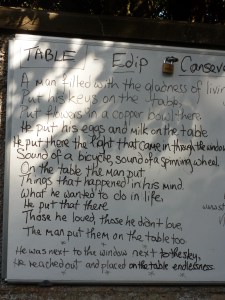 TABLE Edip Cansev
A man filled with the gladness of livin
Put his keys on the table,
Put flowers in a copper bowl there.
He put his eggs and milk on the table.
He put there the light that came in through the window
Sound of a bicycle, sound of a spinning wheel.
On the table the man put
Things that happened in his mind.
What he wanted to do in life,
He put that there.
Those he loved, those he didn't love,
The man put them on the table too.
He was next to the window next to the sky,
He reached out and placed on the table endlessness.